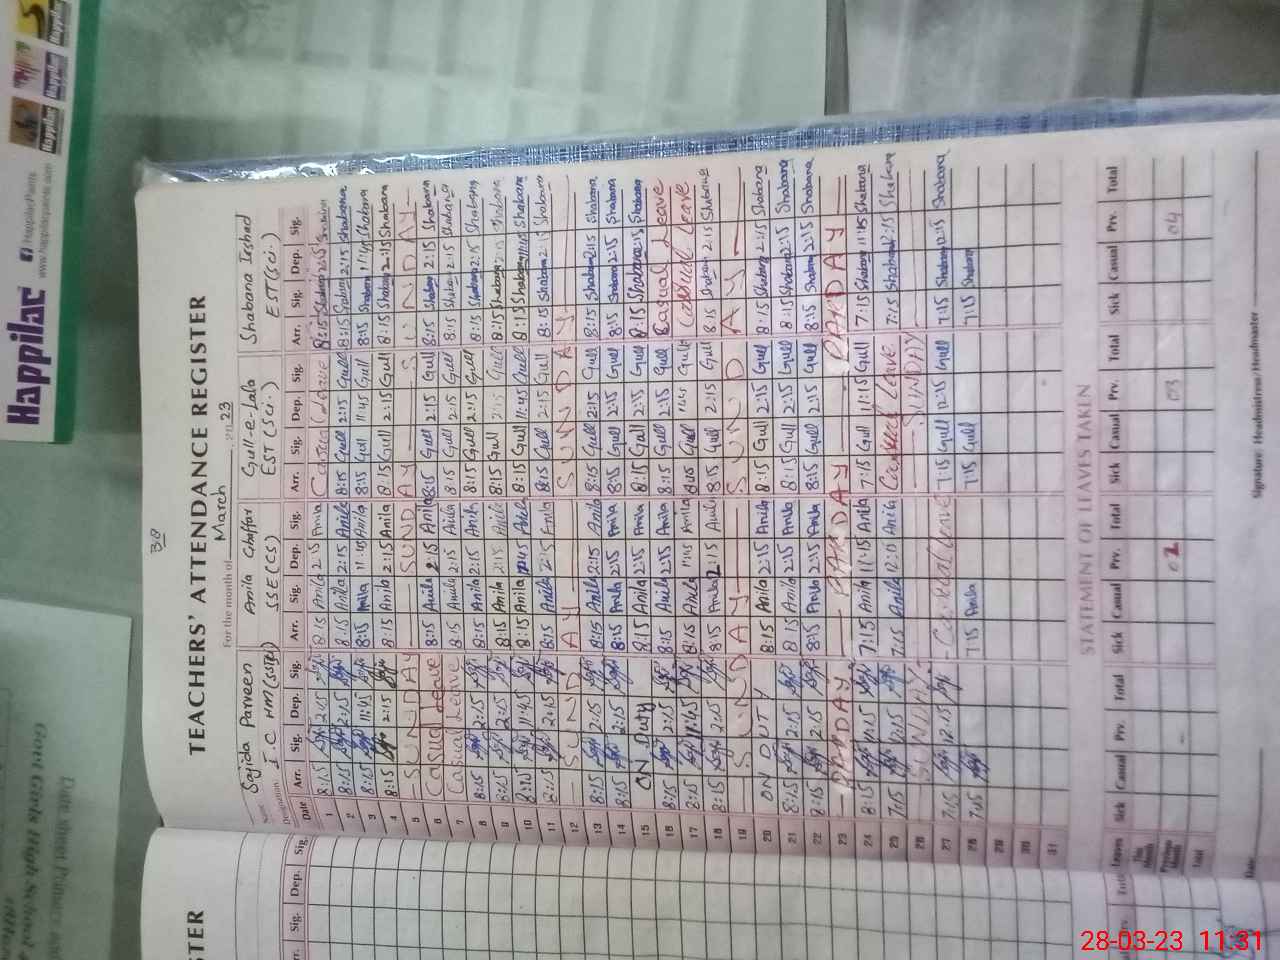 38
TEACHERS' ATTENDANCE REGISTER
For the month of March 2023
Name Sajida Parveen Anila Ghaffar Gull-e-Lala Shabana Irshad
Designation I.C HM(SSE) SSE (CS) EST (Sci.) EST (Sci.)
Date Arr. Sig. Dep. Sig. Arr. Sig. Dep. Sig. Arr. Sig. Dep. Sig. Arr. Sig. Dep. Sig.
1 8:15 2:15 8:15 Anila 2:15 Anila Casual Leave 8:15 Shabana 2:15
2 8:15 2:15 8:15 Anila 2:15 Anila 8:15 Gull 2:15 Gull 8:15 Shabana 2:15 Shabana
3 8:15 11:45 8:15 Anila 11:45 Anila 8:15 Gull 11:45 Gull 8:15 Shabana 11:45 Shabana
4 8:15 2:15 8:15 Anila 2:15 Anila 8:15 Gull 2:15 Gull 8:15 Shabana 2:15 Shabana
5 SUNDAY SUNDAY SUNDAY
6 Casual Leave 8:15 Anila 2:15 Anila 8:15 Gull 2:15 Gull 8:15 Shabana 2:15 Shabana
7 Casual Leave 8:15 Anila 2:15 Anila 8:15 Gull 2:15 Gull 8:15 Shabana 2:15 Shabana
8 8:15 2:15 8:15 Anila 2:15 Anila 8:15 Gull 2:15 Gull 8:15 Shabana 2:15 Shabana
9 8:15 2:15 8:15 Anila 2:15 Anila 8:15 Gull 2:15 Gull 8:15 Shabana 2:15 Shabana
10 8:15 11:45 8:15 Anila 11:45 Anila 8:15 Gull 11:45 Gull 8:15 Shabana 11:45 Shabana
11 8:15 2:15 8:15 Anila 2:15 Anila 8:15 Gull 2:15 Gull 8:15 Shabana 2:15 Shabana
12 SUNDAY SUNDAY
13 8:15 2:15 8:15 Anila 2:15 Anila 8:15 Gull 2:15 Gull 8:15 Shabana 2:15 Shabana
14 8:15 2:15 8:15 Anila 2:15 Anila 8:15 Gull 2:15 Gull 8:15 Shabana 2:15 Shabana
15 ON Duty 8:15 Anila 2:15 Anila 8:15 Gull 2:15 Gull 8:15 Shabana 2:15 Shabana
16 8:15 2:15 8:15 Anila 2:15 Anila 8:15 Gull 2:15 Gull Casual Leave
17 8:15 11:45 8:15 Anila 11:45 Anila 8:15 Gull 11:45 Gull Casual Leave
18 8:15 2:15 8:15 Anila 2:15 Anila 8:15 Gull 2:15 Gull 8:15 Shabana 2:15 Shabana
19 SUNDAY SUNDAY
20 ON DUTY 8:15 Anila 2:15 Anila 8:15 Gull 2:15 Gull 8:15 Shabana 2:15 Shabana
21 8:15 2:15 8:15 Anila 2:15 Anila 8:15 Gull 2:15 Gull 8:15 Shabana 2:15 Shabana
22 8:15 2:15 8:15 Anila 2:15 Anila 8:15 Gull 2:15 Gull 8:15 Shabana 2:15 Shabana
23 PAKDAY PAKDAY PAKDAY
24 8:15 7:15 Anila 11:15 Anila 7:15 Gull 11:15 Gull 7:15 Shabana 11:15 Shabana
25 7:15 7:15 Anila Anila Casual Leave 7:15 Shabana 12:15 Shabana
26 SUNDAY SUNDAY
27 7:15 12:15 Casual Leave 7:15 Gull 12:15 Gull 7:15 Shabana 12:15 Shabana
28 7:15 7:15 Anila 7:15 Gull 7:15 Shabana
29
30
31
STATEMENT OF LEAVES TAKEN
Leaves Sick Casual Prv. Total Sick Casual Prv. Total Sick Casual Prv. Total Sick Casual Prv. Total
This Month
Previous Month - 02 03 04
Total
Date Signature: Headmistress / Headmaster
STER
Sig. Dep. Sig.
Happilac
HappilacPaints
www.happilacpaints.com
Happilac
Happilac
Happilac
Govt Girls High School
28-03-23 11:31